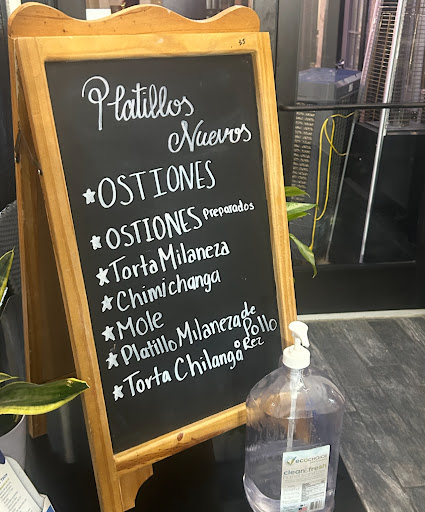 Platillos
Nuevos
★OSTIONES
★OSTIONES Preparados
★Torta Milaneza
★Chimichanga
★Mole
★Platillo Milaneza de Pollo o Rez
★Torta Chilanga
ecochoice
clean+fresh